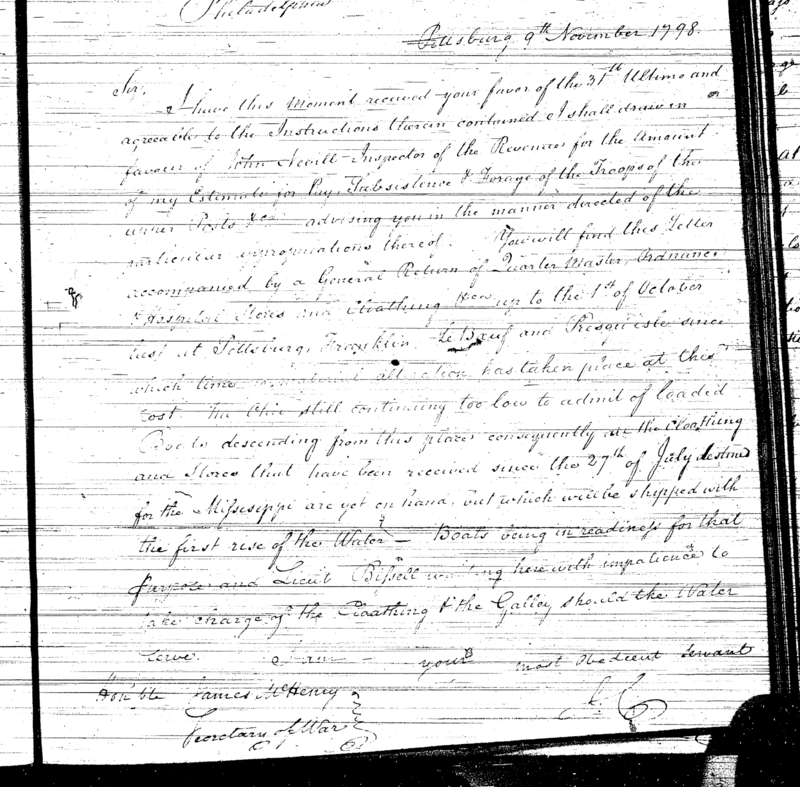 Philadelphia
Pittsburg, 9th November 1798.
Sir,
I have this Moment received your favor of the 31st Ultimo and
agreeable to the Instructions therein contained I shall draw in
favour of John Nevill Inspector of the Revenue for the Amount
of my Estimate for Pay, Subsistence & Forage of the Troops of the
upper Posts &ca advising you in the manner directed of the
particular appropriations thereof. You will find this Letter
accompanied by a General Return of Quarter Master, Ordnance
& Hospital Stores and Cloathing &ca up to the 1st of October
last at Pittsburg, Franklin, Le Bœuf and Presquisle since
which time no material alteration has taken place at this
Post. The Ohio still continuing too low to admit of loaded
Boats descending from this place consequently all the Cloathing
and Stores that have been received since the 27th of July destined
for the Missisippi are yet on hand, but which will be shipped with
the first rise of the Water - Boats being in readiness for that
purpose and Lieut Bissell waiting here with impatience to
take charge of the Cloathing & the Galley should the Water
serve. I am - your most Obedient Servant
Honble James McHenry
Secretary of War